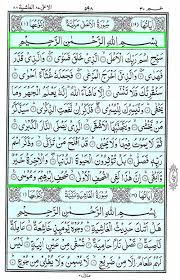 ٥٩٨
سُوْرَةُ الْاَعْلٰى مَكِّيَّةٌ
بِسْمِ اللّٰهِ الرَّحْمٰنِ الرَّحِيْمِ
سَبِّحِ اسْمَ رَبِّكَ الْاَعْلَى الَّذِيْ خَلَقَ فَسَوّٰى وَالَّذِيْ
قَدَّرَ فَهَدٰى وَالَّذِيْٓ اَخْرَجَ الْمَرْعٰى فَجَعَلَهٗ غُثَآءً اَحْوٰى
سَنُقْرِئُكَ فَلَا تَنْسٰٓى اِلَّا مَا شَآءَ اللّٰهُ اِنَّهٗ يَعْلَمُ الْجَهْرَ وَ
مَا يَخْفٰى وَنُيَسِّرُكَ لِلْيُسْرٰى فَذَكِّرْ اِنْ نَّفَعَتِ الذِّكْرٰى
سَيَذَّكَّرُ مَنْ يَّخْشٰى وَيَتَجَنَّبُهَا الْاَشْقَى الَّذِيْ يَصْلَى النَّارَ
الْكُبْرٰى ثُمَّ لَا يَمُوْتُ فِيْهَا وَلَا يَحْيٰى قَدْ اَفْلَحَ مَنْ تَزَكّٰى
وَذَكَرَ اسْمَ رَبِّهٖ فَصَلّٰى بَلْ تُؤْثِرُوْنَ الْحَيٰوةَ الدُّنْيَا وَالْاٰخِرَةُ
خَيْرٌ وَّاَبْقٰى اِنَّ هٰذَا لَفِي الصُّحُفِ الْاُوْلٰى صُحُفِ اِبْرٰهِيْمَ وَمُوْسٰى
سُوْرَةُ الْغَاشِيَةِ مَكِّيَّةٌ
بِسْمِ اللّٰهِ الرَّحْمٰنِ الرَّحِيْمِ
هَلْ اَتٰىكَ حَدِيْثُ الْغَاشِيَةِ وُجُوْهٌ يَّوْمَئِذٍ خَاشِعَةٌ عَامِلَةٌ
نَّاصِبَةٌ تَصْلٰى نَارًا حَامِيَةً تُسْقٰى مِنْ عَيْنٍ اٰنِيَةٍ لَيْسَ
لَهُمْ طَعَامٌ اِلَّا مِنْ ضَرِيْعٍ لَّا يُسْمِنُ وَلَا يُغْنِيْ مِنْ جُوْعٍ